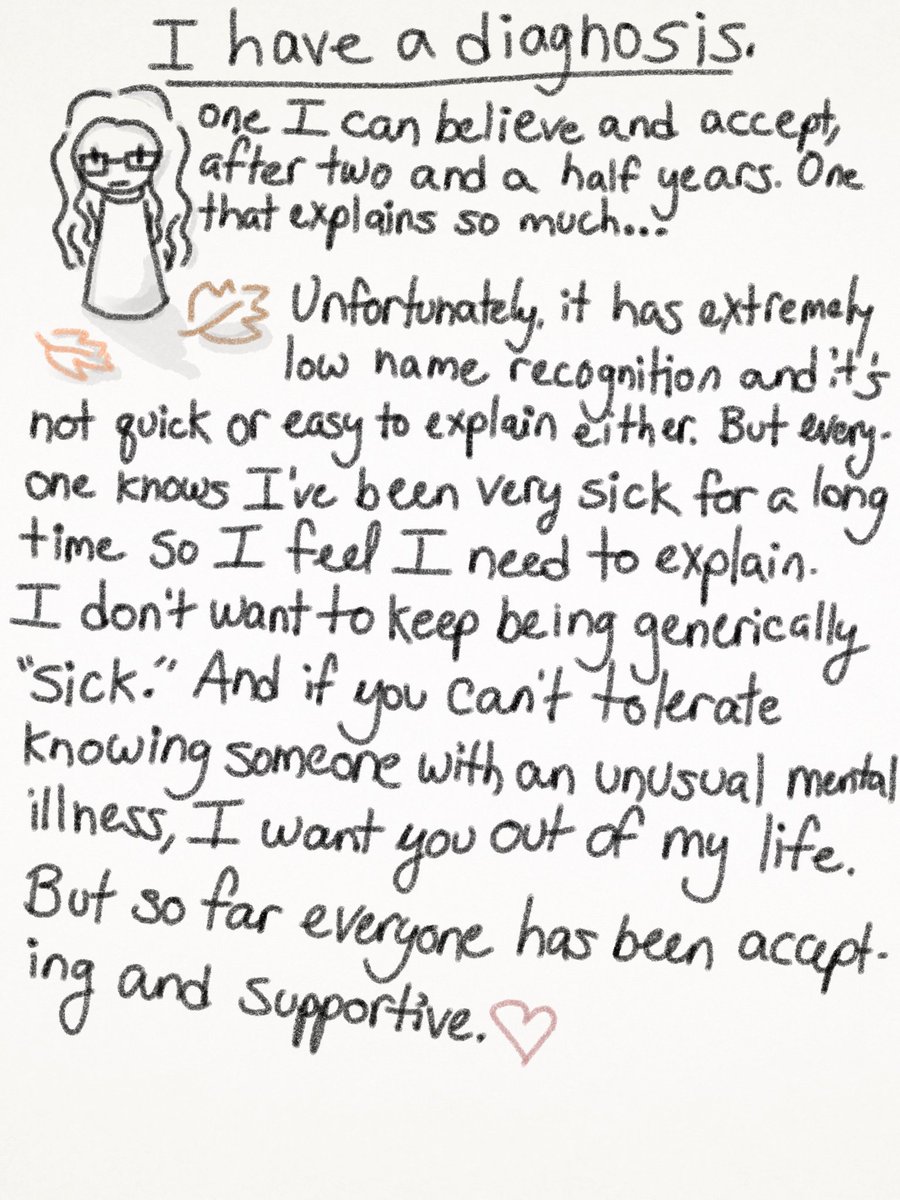 I have a diagnosis.
one I can believe and accept,
after two and a half years. One
that explains so much...
Unfortunately, it has extremely
low name recognition and it's
not quick or easy to explain either. But every-
one knows I've been very sick for a long
time so I feel I need to explain.
I don't want to keep being generically
"sick." And if you can't tolerate
knowing someone with an unusual mental
illness, I want you out of my life.
But so far everyone has been accept-
ing and supportive.